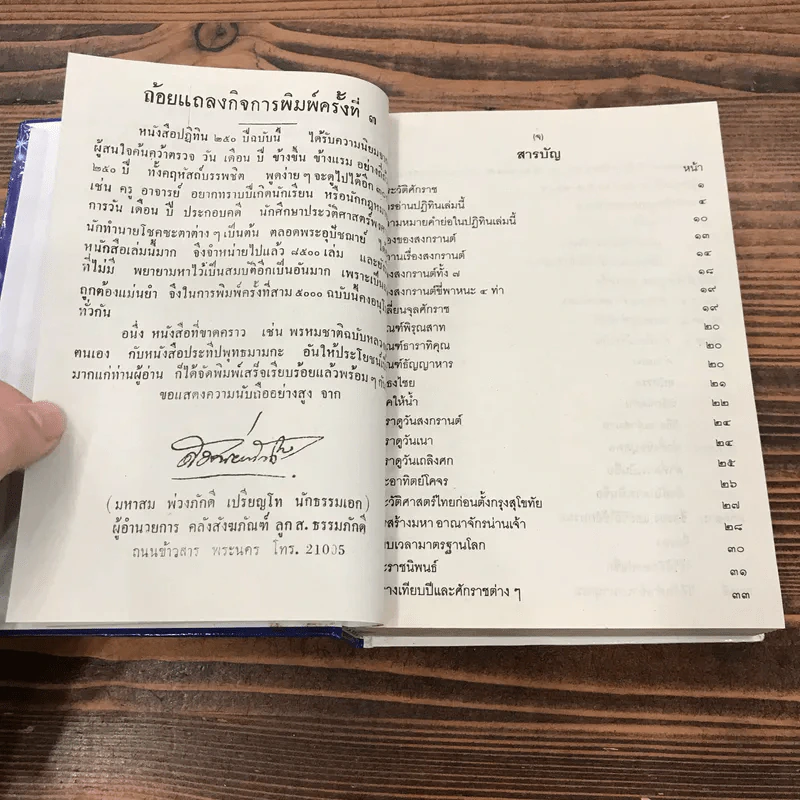 ถ้อยแถลงกิจการพิมพ์ครั้งที่ ๓
หนังสือปฏิทิน ๒๕๐ ปีฉบับนี้ ได้รับความนิยม
ผู้สนใจค้นคว้าตรวจ วัน เดือน ปี ข้างขึ้น ข้างแรม
๒๕๐ ปี ทั้งคฤหัสถ์บรรพชิต พูดง่ายๆ จะดูไปได้อีก
เช่น ครู อาจารย์ อยากทราบปีเกิดนักเรียน หรือนักกฎหมาย
การวัน เดือน ปี ประกอบคดี นักศึกษาประวัติศาสตร์
นักทำนายโชคชะตาต่างๆ เป็นต้น ตลอดพระอุปัชฌาย์
หนักสือเล่มนี้มาก จึงจำหน่ายไปแล้ว ๘๕๐๐ เล่ม
ที่ไม่มี พยายามหาไว้เป็นสมบัติอีกเป็นอันมาก
ถูกต้องแม่นยำ จึงในการพิมพ์ครั้งที่สาม ๕๐๐๐ ฉบับนี้คง
ทั่วกัน
อนึ่ง หนังสือที่ขาดคราว เช่น พรหมชาติฉบับหลวง
ตนเอง กับหนังสือประทีปพุทธมามกะ อันให้ประโยชน์
มากแก่ท่านผู้อ่าน ก็ได้จัดพิมพ์เสร็จเรียบร้อยแล้วพร้อมๆ
ขอแสดงความนับถืออย่างสูง จาก
(มหาสม พ่วงภักดี เปรียญโท นักธรรมเอก)
ผู้อำนวยการ คลังสังฆภัณฑ์ ลูก ส. ธรรมภักดี
ถนนข้าวสาร พระนคร โทร. 21005
(ข)
สารบัญ
หน้า
ะวัติศักราช ๑
รอ่านปฏิทินเล่มนี้ ๕
ามหมายคำย่อในปฏิทินเล่มนี้ ๑๐
องของสงกรานต์ ๑๓
านเรื่องสงกรานต์ ๑๔
งสงกรานต์ทั้ง ๗ ๑๘
งสงกรานต์ขี่พาหนะ ๔ ท่า ๑๙
ลี่ยนจุลศักราช ๑๙
ณฑ์พิรุณสาท ๒๐
ณฑ์ธาราทิคุณ ๒๐
ณฑ์ธัญญาหาร ๒๐
ธงไชย ๒๑
คให้น้ำ ๒๒
ราดูวันสงกรานต์ ๒๔
ราดูวันเนา ๒๔
ราดูวันเถลิงศก ๒๕
ะอาทิตย์โคจร ๒๖
ะวัติศาสตร์ไทยก่อนตั้งกรุงสุโขทัย ๒๗
สร้างมหา อาณาจักรน่านเจ้า ๒๘
บเวลามาตรฐานโลก ๓๐
ะราชนิพนธ์ ๓๑
างเทียบปีและศักราชต่าง ๆ ๓๓